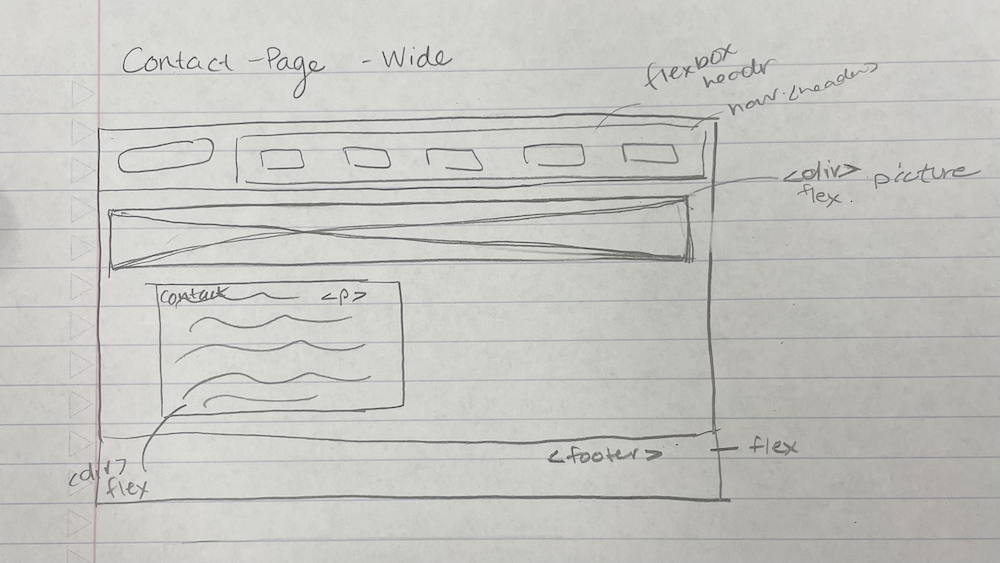 Contact -Page - Wide
flexbox
header
nav <header>
<div> picture
flex.
contact <p>
<footer>
flex
<div>
flex